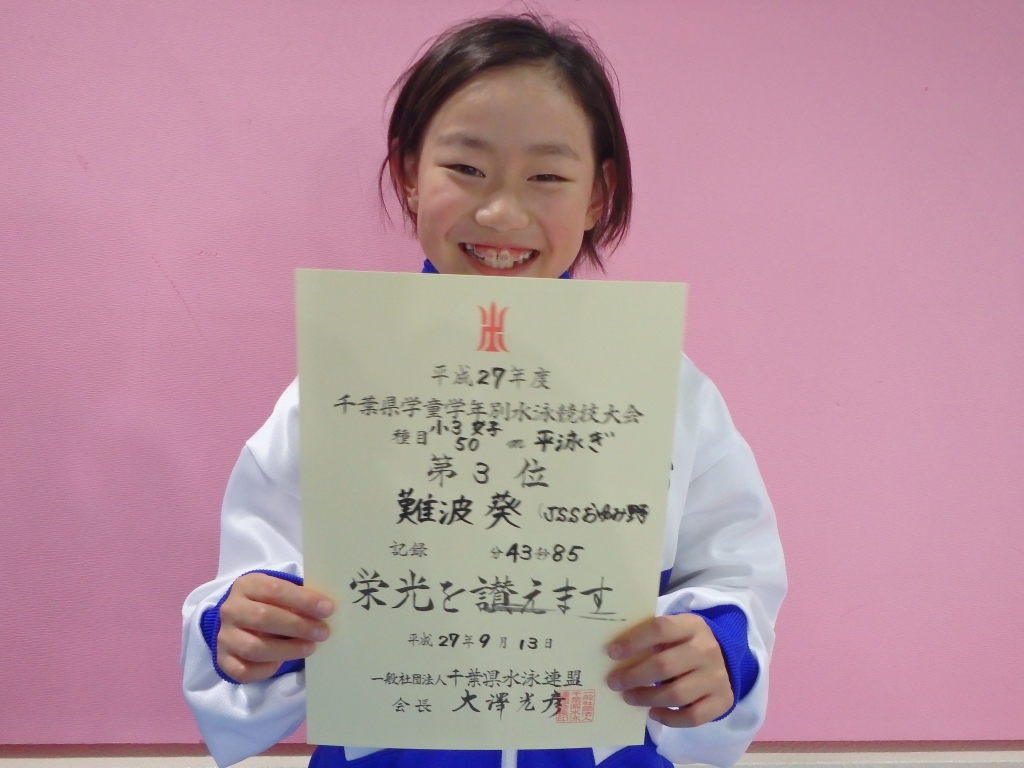 平成27年度
千葉県学童学年別水泳競技大会
種目 小3女子 50m 平泳ぎ
第3位
難波葵 (JSSおゆみ野
記録 分43秒85
栄光を讃えます
平成27年9月13日
一般社団法人千葉県水泳連盟
会長 大澤光彦